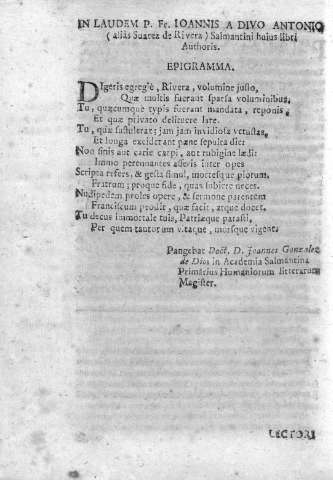 IN LAUDEM P. Fr. IOANNIS A DIVO ANTONIO
( aliàs Suarez de Rivera ) Salmantini huius libri
Authoris.
EPIGRAMMA.
DIgeris egregiè, Rivera, volumine justo,
Quæ multis fuerant sparsa voluminibus.
Tu, quæcumque typis fuerant mandata, reponis
Et quæ privato delituere lare.
Tu, quæ sustulerat; jam jam invidiosa vetustas,
Et longa exciderant pæne sepulta die:
Non sinis aut carie carpi, aut rubigine lædi:
Immo perennantes asseris inter opes
Scripta refers, & gesta simul, mortesque piorum.
Fratrum; proque fide, quas subiere neces.
Nudipedem proles opere, & sermone parentem
Franciscum prodit, quæ facit, atque docet.
Tu decus immortale tuis, Patriæque parasti,
Per quem tantorum vitaque, morsque viget.
Pangebat Doct. D. Joannes Gonzalez
de Dios in Academia Salmantina
Primarius Humaniorum litterarum
Magister.
LECTORI